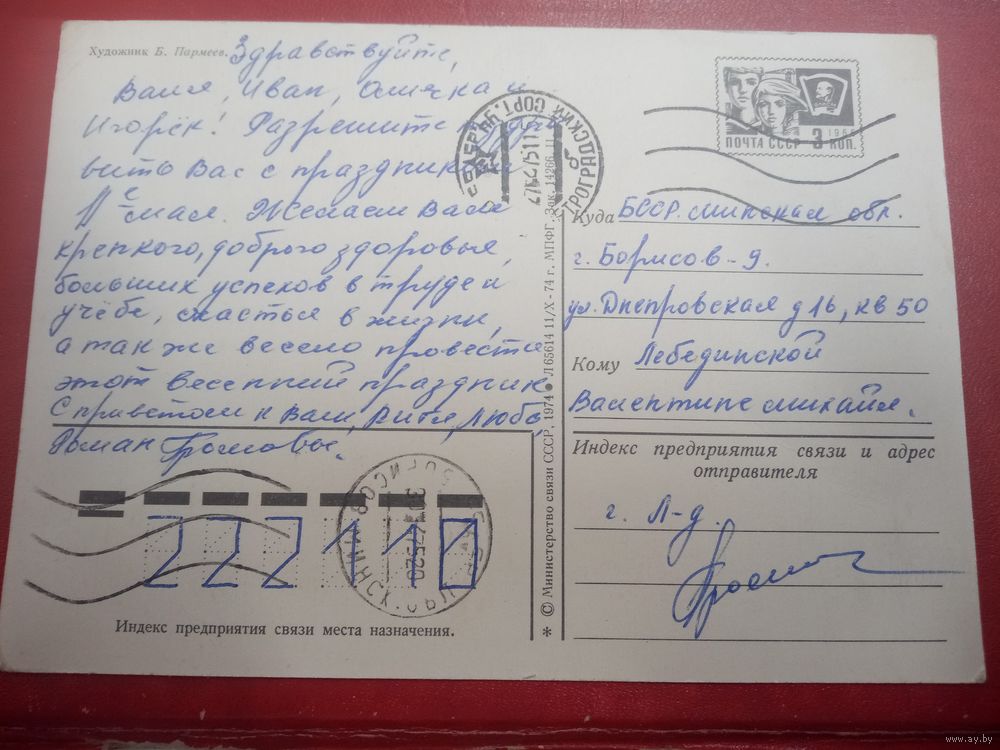 Художник Б. Пармеев.
Здравствуйте,
Валя, Иван, Олечка и
Игорёк! Разрешите
вить Вас с праздником
1 е мая. Желаем Вам
крепкого, доброго здоровья,
больших успехов в труде и
учёбе, счастья в жизни,
а также весело провести
этот весенний праздник
С приветом к Вам, Витя, Люба,
Роман Громовы.
222110
Индекс предприятия связи места назначения.
БОРИСОВ МИНСК.
* © Министерство связи СССР, 1974 ● Л 65614 11/X - 74 г., МПФГ. Зак. 14266.
ПОЧТА СССР 3 КОП.
1966
Куда БССР. Минская обл.
г. Борисов - 9.
ул. Днепровская д 16, кв 50
Кому Лебединской
Валентине Михайл.
Индекс предприятия связи и адрес
отправителя
г. Л-д.
www.ay.by